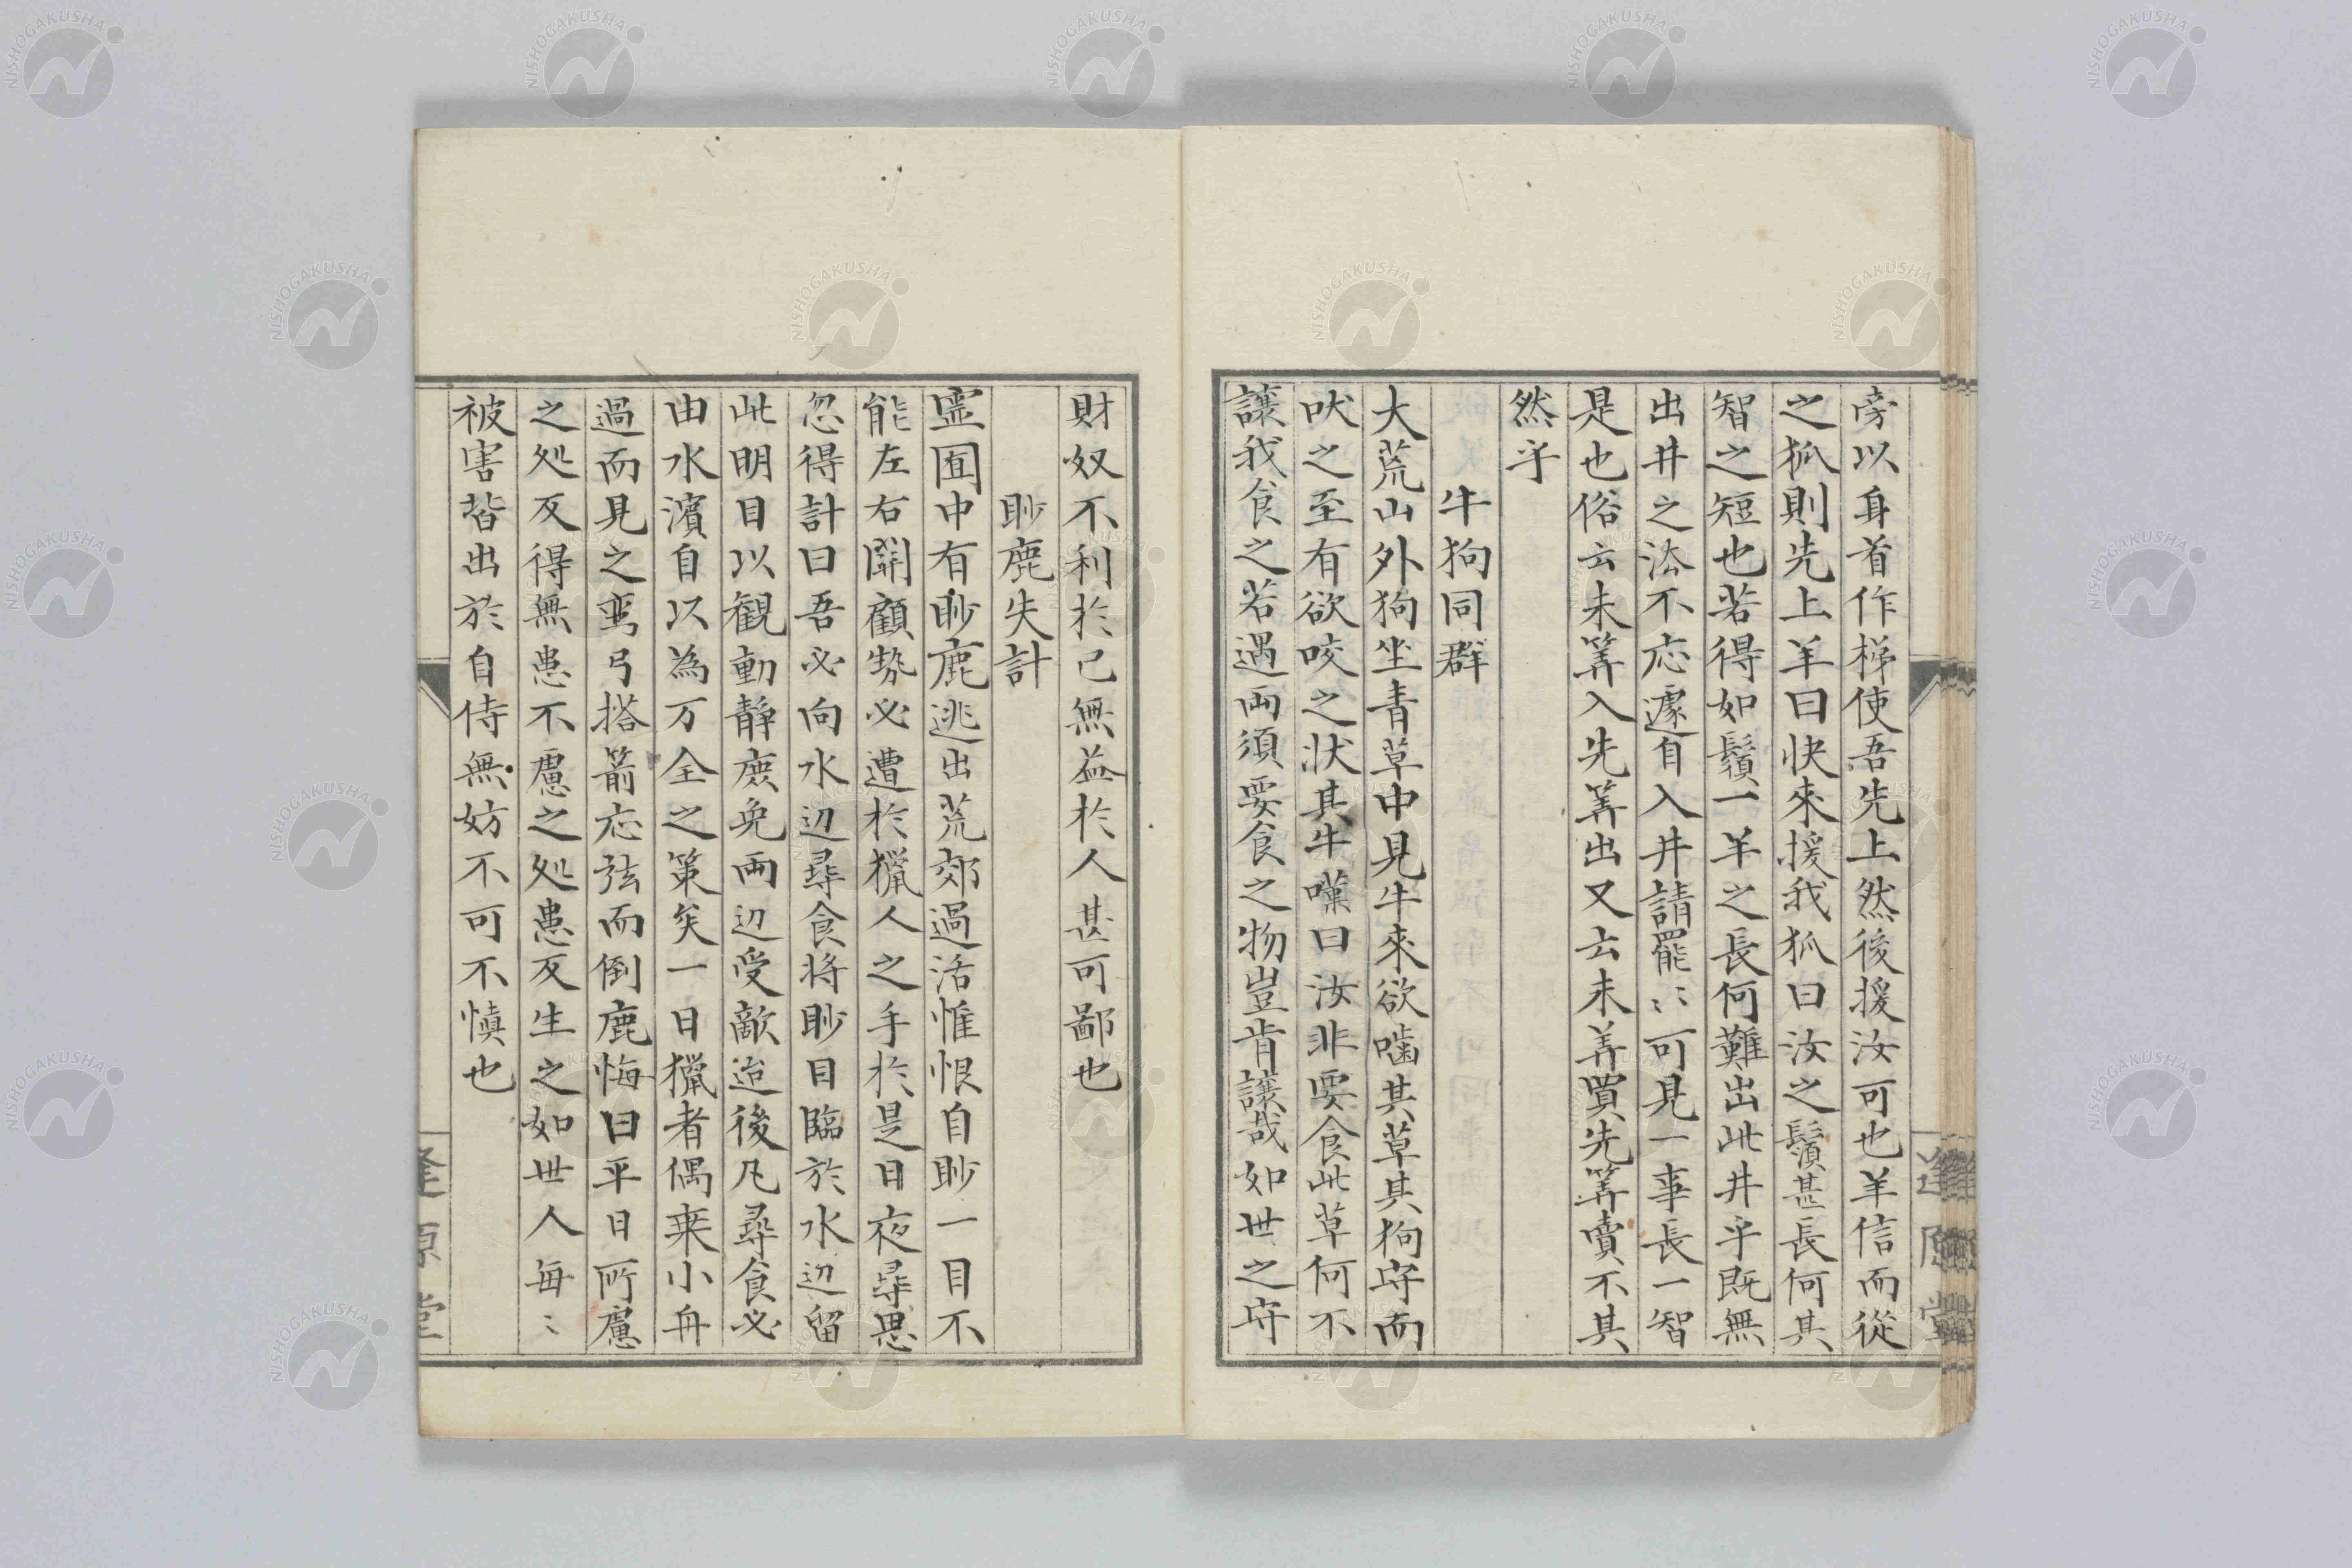 旁以身首作梯使吾先上然後援汝可也羊信而從
之狐則先上羊曰快來援我狐曰汝之鬚甚長何其
智之短也若得如鬚一羊之長何難出此井乎既無
出井之法不応遽自入井請罷〻可見一事長一智
是也俗云未筭入先筭出又云未筭買先筭賣不其
然乎
牛狗同群
大荒山外狗坐青草中見牛來欲嚙其草其狗守而
吠之至有欲咬之状其牛嘆曰汝非要食此草何不
讓我食之若遇両須要食之物豈肯讓哉如世之守
財奴不利於己無益於人甚可鄙也
眇鹿失計
霊囿中有眇鹿逃出荒郊過活惟恨自眇一目不
能左右関顧勢必遭於獵人之手於是日夜尋思
忽得計曰吾必向水辺尋食将眇目臨於水辺留
此明目以観動靜庶免両辺受敵迨後凡尋食必
由水濱自以為万全之策矣一日獵者偶来小舟
過而見之彎弓搭箭応弦而倒鹿悔曰平日所慮
之処反得無患不慮之処患反生之如世人毎〻
被害皆出於自侍無妨不可不慎也
逢原堂
NISHOGAKUSHA